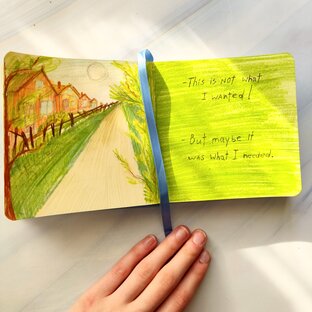 -This is not what
I wanted!
-But maybe it
was what I needed.